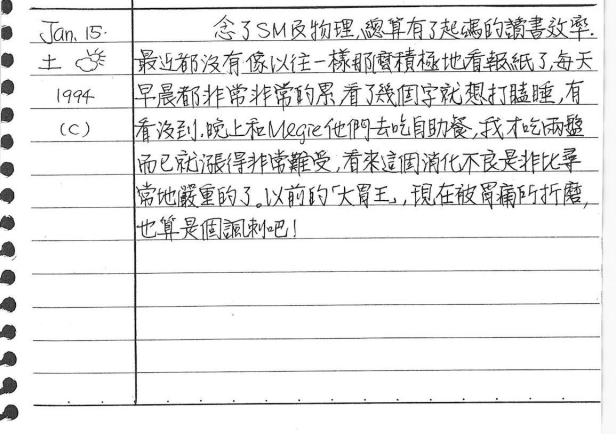 Jan. 15. 念了SM及物理,總算有了起碼的讀書效率.
土 最近都沒有像以往一樣那麼積極地看報紙了,每天
1994 早晨都非常非常的累,看了幾個字就想打瞌睡,有
(C) 看沒到.晚上和Megie他們去吃自助餐,我才吃兩盤
而已就漲得非常難受,看來這個消化不良是非比尋
常地嚴重的了。以前的「大胃王」,現在被胃痛所折磨,
也算是個諷刺吧!